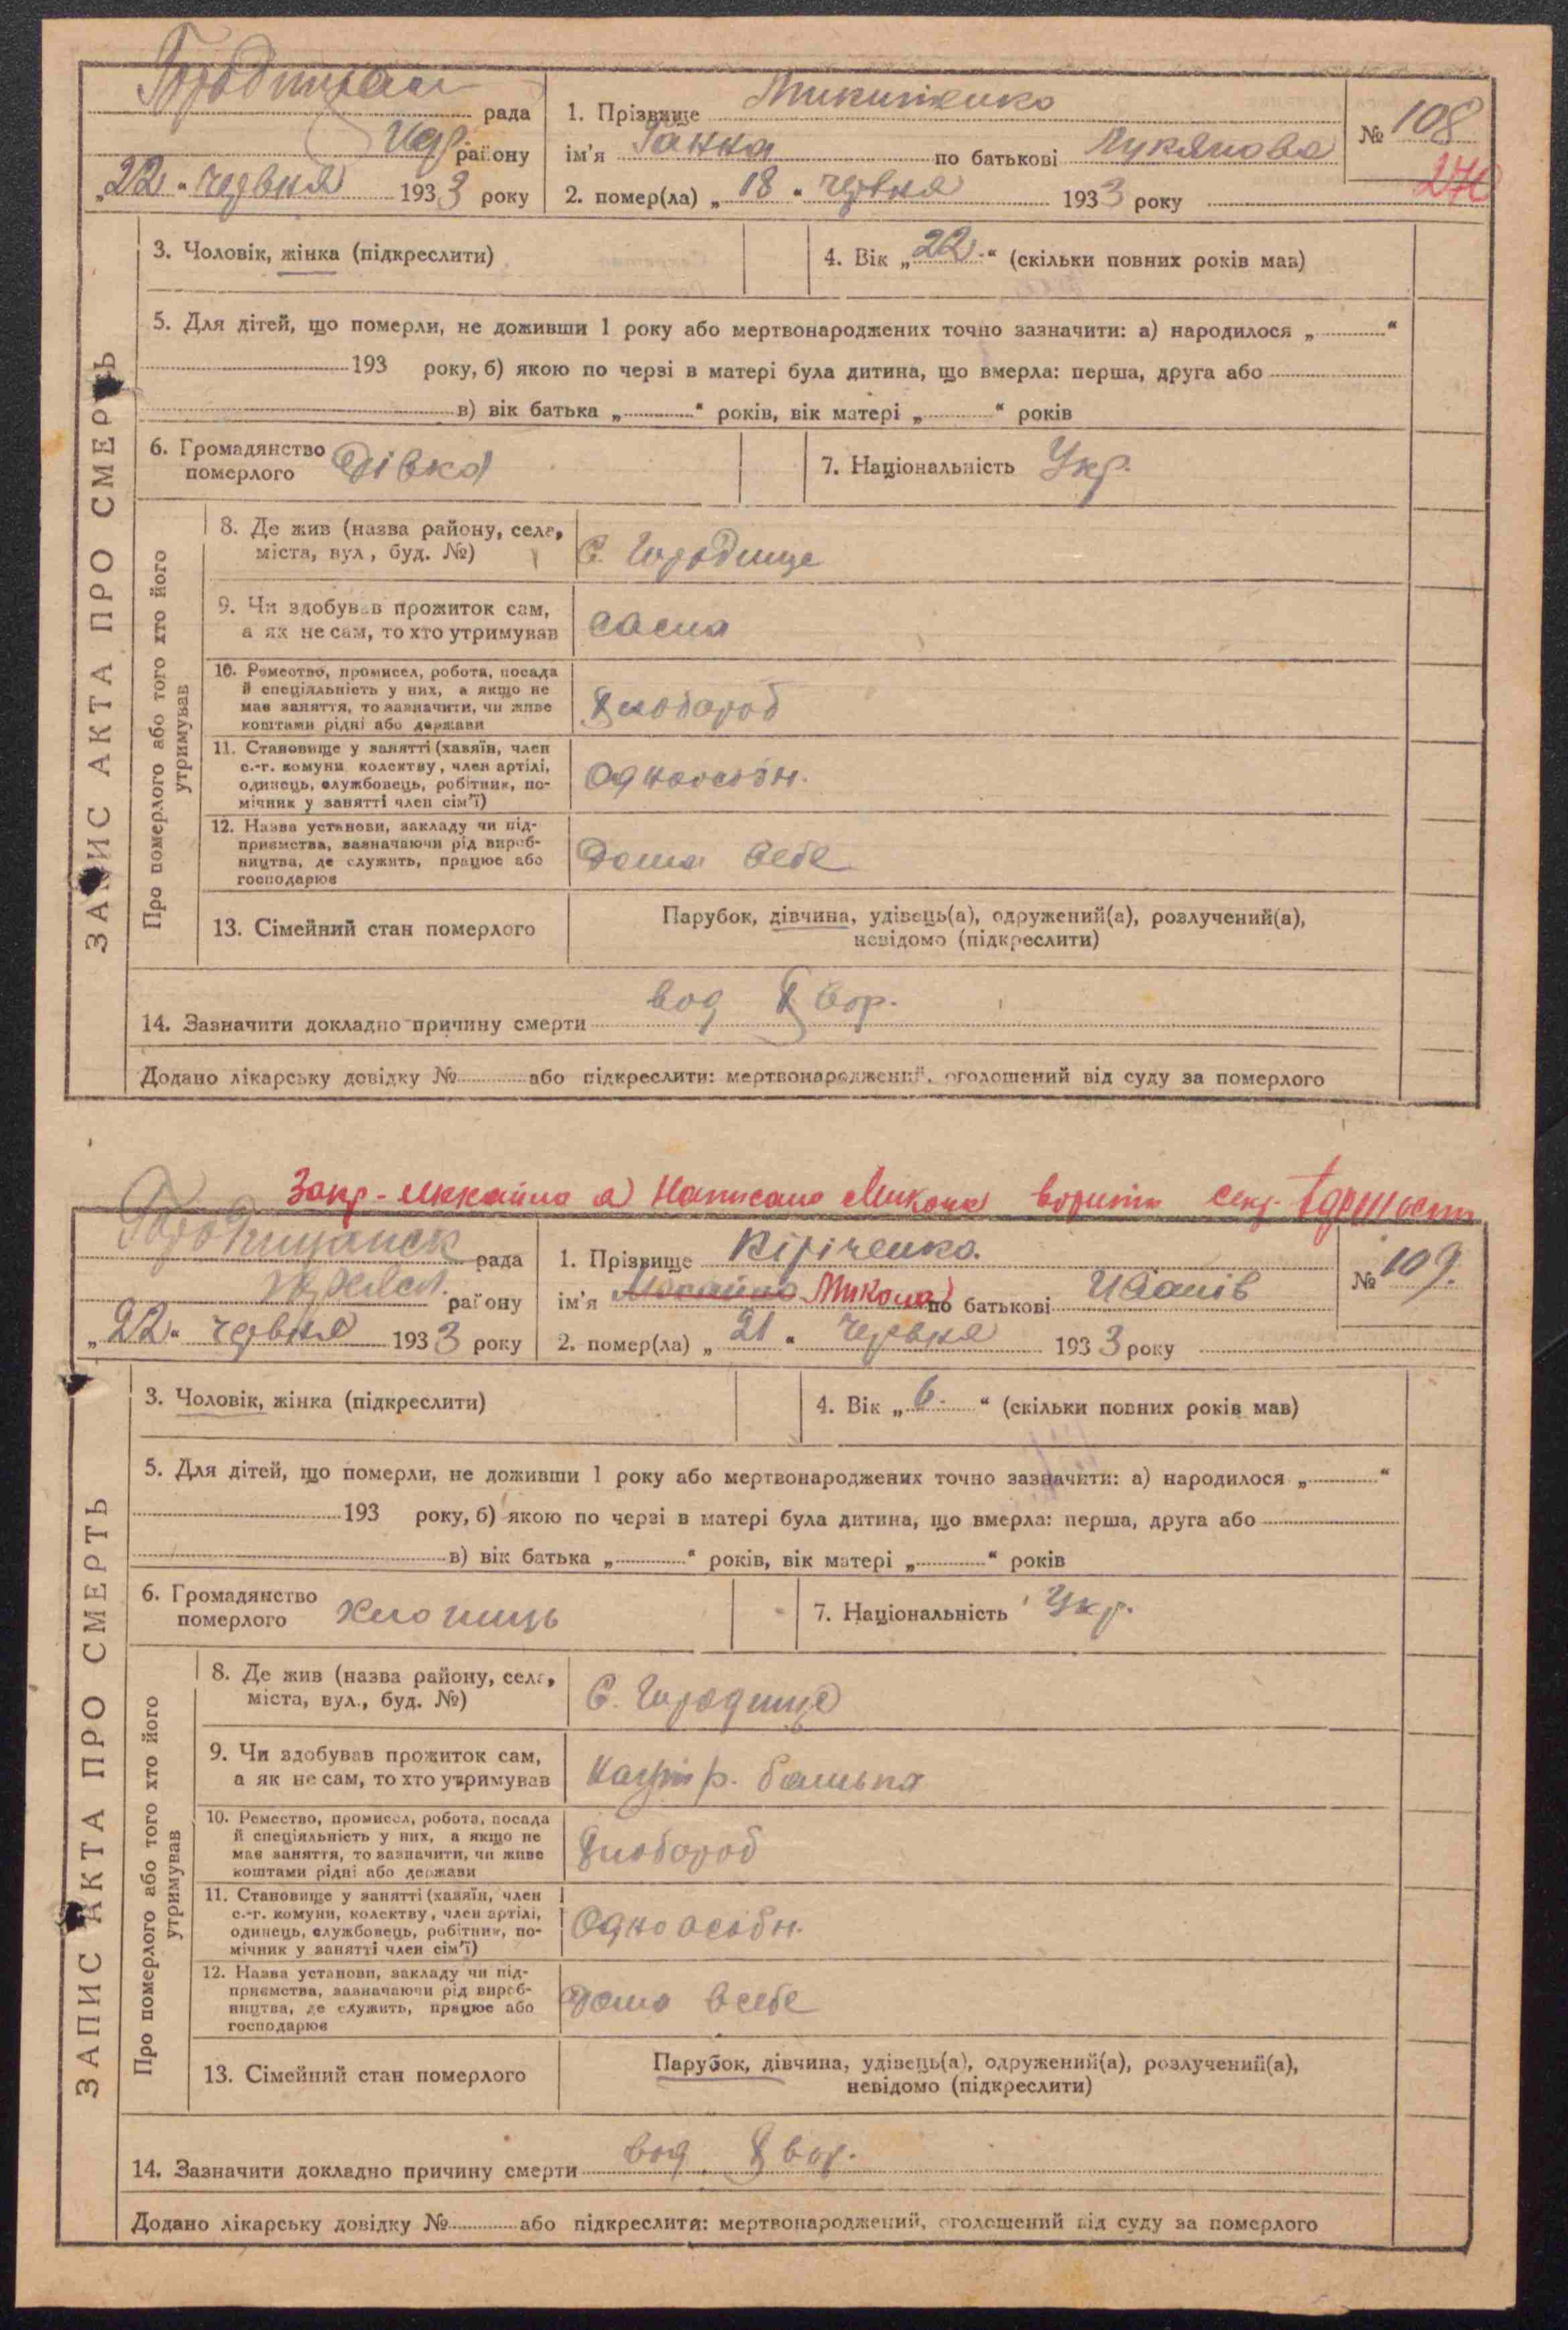 рада
району
„22“ червня 1933 року
1. Прізвище Микитенко
ім'я Ганка по батькові Лукянова
2. помер(ла) „18“ червня 1933 року
№ 108
270
ЗАПИС АКТА ПРО СМЕРТЬ
3. Чоловік, жінка (підкреслити)
4. Вік „22.“ (скільки повних років мав)
5. Для дітей, що померли, не доживши 1 року або мертвонароджених точно зазначити: а) народилося „ “
193 року, б) якою по черзі в матері була дитина, що вмерла: перша, друга або
в) вік батька „ “ років, вік матері „ “ років
6. Громадянство
померлого дівка
7. Національність Укр.
Про померлого або того хто його
утримував
8. Де жив (назва району, села,
міста, вул, буд. №)
С. Городище
9. Чи здобував прожиток сам,
а як не сам, то хто утримував
сама
10. Ремество, промисел, робота, посада
й спеціяльність у них, а якщо не
має заняття, то зазначити, чи живе
коштами рідні або держави
Хлібороб
11. Становище у занятті (хазяїн, член
с.-г. комуни, колектву, член артілі,
одинець, службовець, робітник, по-
мічник у занятті член сім'ї)
Одноосібн.
12. Назва установи, закладу чи під-
приємства, зазначаючи рід вироб-
ництва, де служить, працює або
господарює
Дома себе
13. Сімейний стан померлого
Парубок, дівчина, удівець(а), одружений(а), розлучений(а),
невідомо (підкреслити)
14. Зазначити докладно причину смерти вод хвор.
Додано лікарську довідку № або підкреслити: мертвонароджений, оголошений від суду за померлого
Написано Микола
Городищанск рада
району
„22“ червня 1933 року
1. Прізвище Кіріченко.
ім'я Михайло Микола по батькові Иванів
2. помер(ла) „21“ червня 1933 року
№ 109.
ЗАПИС АКТА ПРО СМЕРТЬ
3. Чоловік, жінка (підкреслити)
4. Вік „6.“ (скільки повних років мав)
5. Для дітей, що померли, не доживши 1 року або мертвонароджених точно зазначити: а) народилося „ “
193 року, б) якою по черзі в матері була дитина, що вмерла: перша, друга або
в) вік батька „ “ років, вік матері „ “ років
6. Громадянство
померлого хлопиць
7. Національність Укр.
Про померлого або того хто його
утримував
8. Де жив (назва району, села,
міста, вул., буд. №)
С. Городище
9. Чи здобував прожиток сам,
а як не сам, то хто утримував
батька
10. Ремество, промисел, робота, посада
й спеціяльність у них, а якщо не
має заняття, то зазначити, чи живе
коштами рідні або держави
Хлібороб
11. Становище у занятті (хазяїн, член
с.-г. комуни, колектву, член артілі,
одинець, службовець, робітник, по-
мічник у занятті член сім'ї)
Одноосібн.
12. Назва установи, закладу чи під-
приємства, зазначаючи рід вироб-
ництва, де служить, працює або
господарює
Дома в себе
13. Сімейний стан померлого
Парубок, дівчина, удівець(а), одружений(а), розлучений(а),
невідомо (підкреслити)
14. Зазначити докладно причину смерти вод хвор.
Додано лікарську довідку № або підкреслити: мертвонароджений, оголошений від суду за померлого